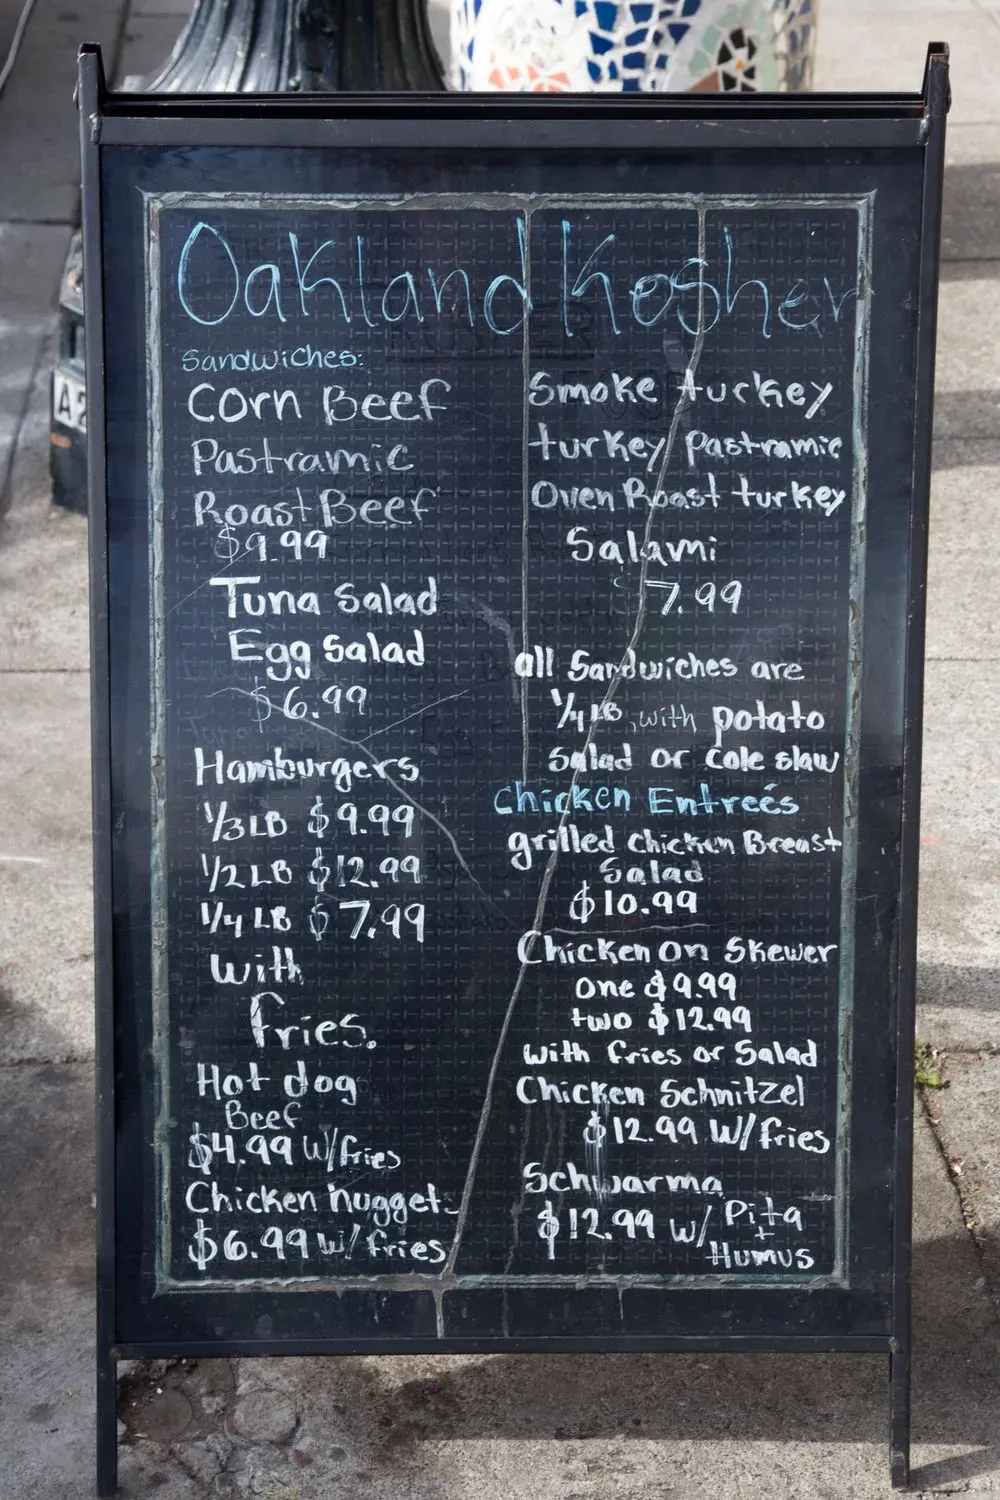 Oakland Kosher
Sandwiches:
Corn Beef
Pastramic
Roast Beef
$9.99
Tuna Salad
Egg Salad
$6.99
Hamburgers
1/3 LB $9.99
1/2 LB $12.99
1/4 LB $7.99
with
fries.
Hot dog
Beef
$4.99 w/fries
Chicken nuggets
$6.99 w/ fries
Smoke turkey
turkey Pastramic
Oven Roast turkey
Salami
7.99
all Sandwiches are
1/4 LB with potato
Salad or Cole slaw
Chicken Entreés
grilled chicken Breast
Salad
$10.99
Chicken on Skewer
one $9.99
two $12.99
with fries or Salad
Chicken Schnitzel
$12.99 w/fries
Schwarma
$12.99 w/ Pita
+
Humus